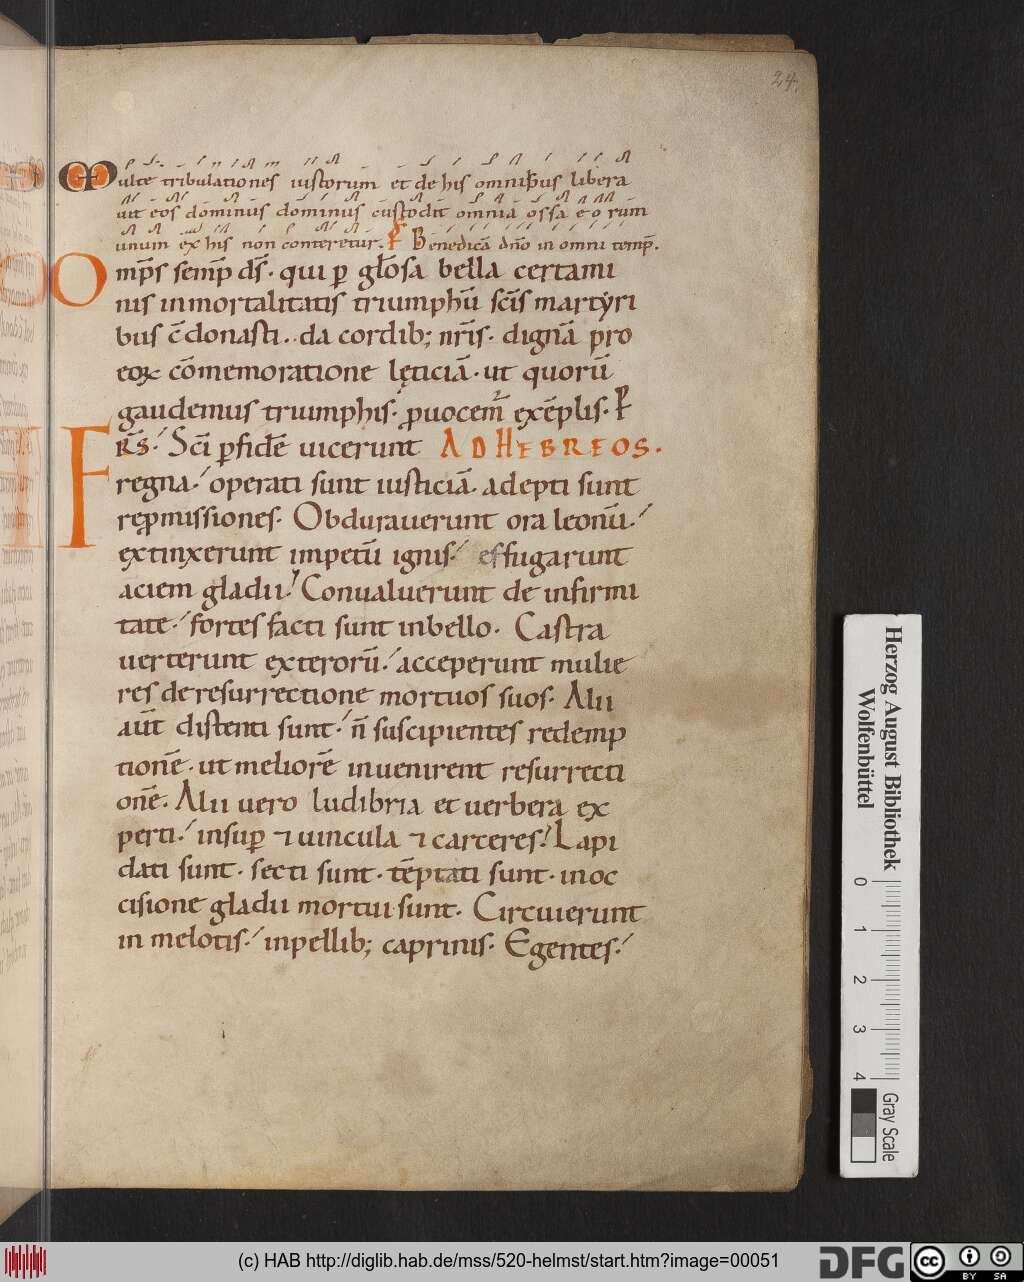 24.
Multe tribulationes iustorum et de his omnibus libera
uit eos dominus dominus custodit omnia ossa eorum
unum ex his non conteretur. Ps Benedicā dño in omni temp̄.
Omp̄s semp̄ dš. qui ꝑ gło̅sa bella certami
nis inmortalitatis triumphū sc̄is martẏri
bus c̄donasti. da cordib; nr̄is. dignā pro
eoꝝ cōmemoratione lęticiā. ut quorū
gaudemus triumphis. ꝓuocem̄ exēplis. P
FRS̄. Sc̄i ꝑfidē uicerunt AD HEBREOS.
regna. operati sunt iusticiā. adepti sunt
reꝓmissiones. Obdurauerunt ora leonū.
extinxerunt impetū ignis. effugarunt
aciem gladii. Conualuerunt de infirmi
tate. fortes facti sunt inbello. Castra
uerterunt exterorū. acceperunt mulie
res deresurrectione mortuos suos. Alii
aūt distenti sunt. n̄ suscipientes redemp
tionē. ut meliorē inuenirent resurrecti
onē. Alii uero ludibria et uerbera ex
perti. insuꝑ ⁊ uincula ⁊ carceres. Lapi
dati sunt. secti sunt. tēptati sunt. inoc
cisione gladii mortui sunt. Circuierunt
in melotis. inpellib; caprinis. Egentes.
Herzog August Bibliothek
Wolfenbüttel
0 1 2 3 4
Gray Scale
(c) HAB http://diglib.hab.de/mss/520-helmst/start.htm?image=00051
DFG
cc BY SA